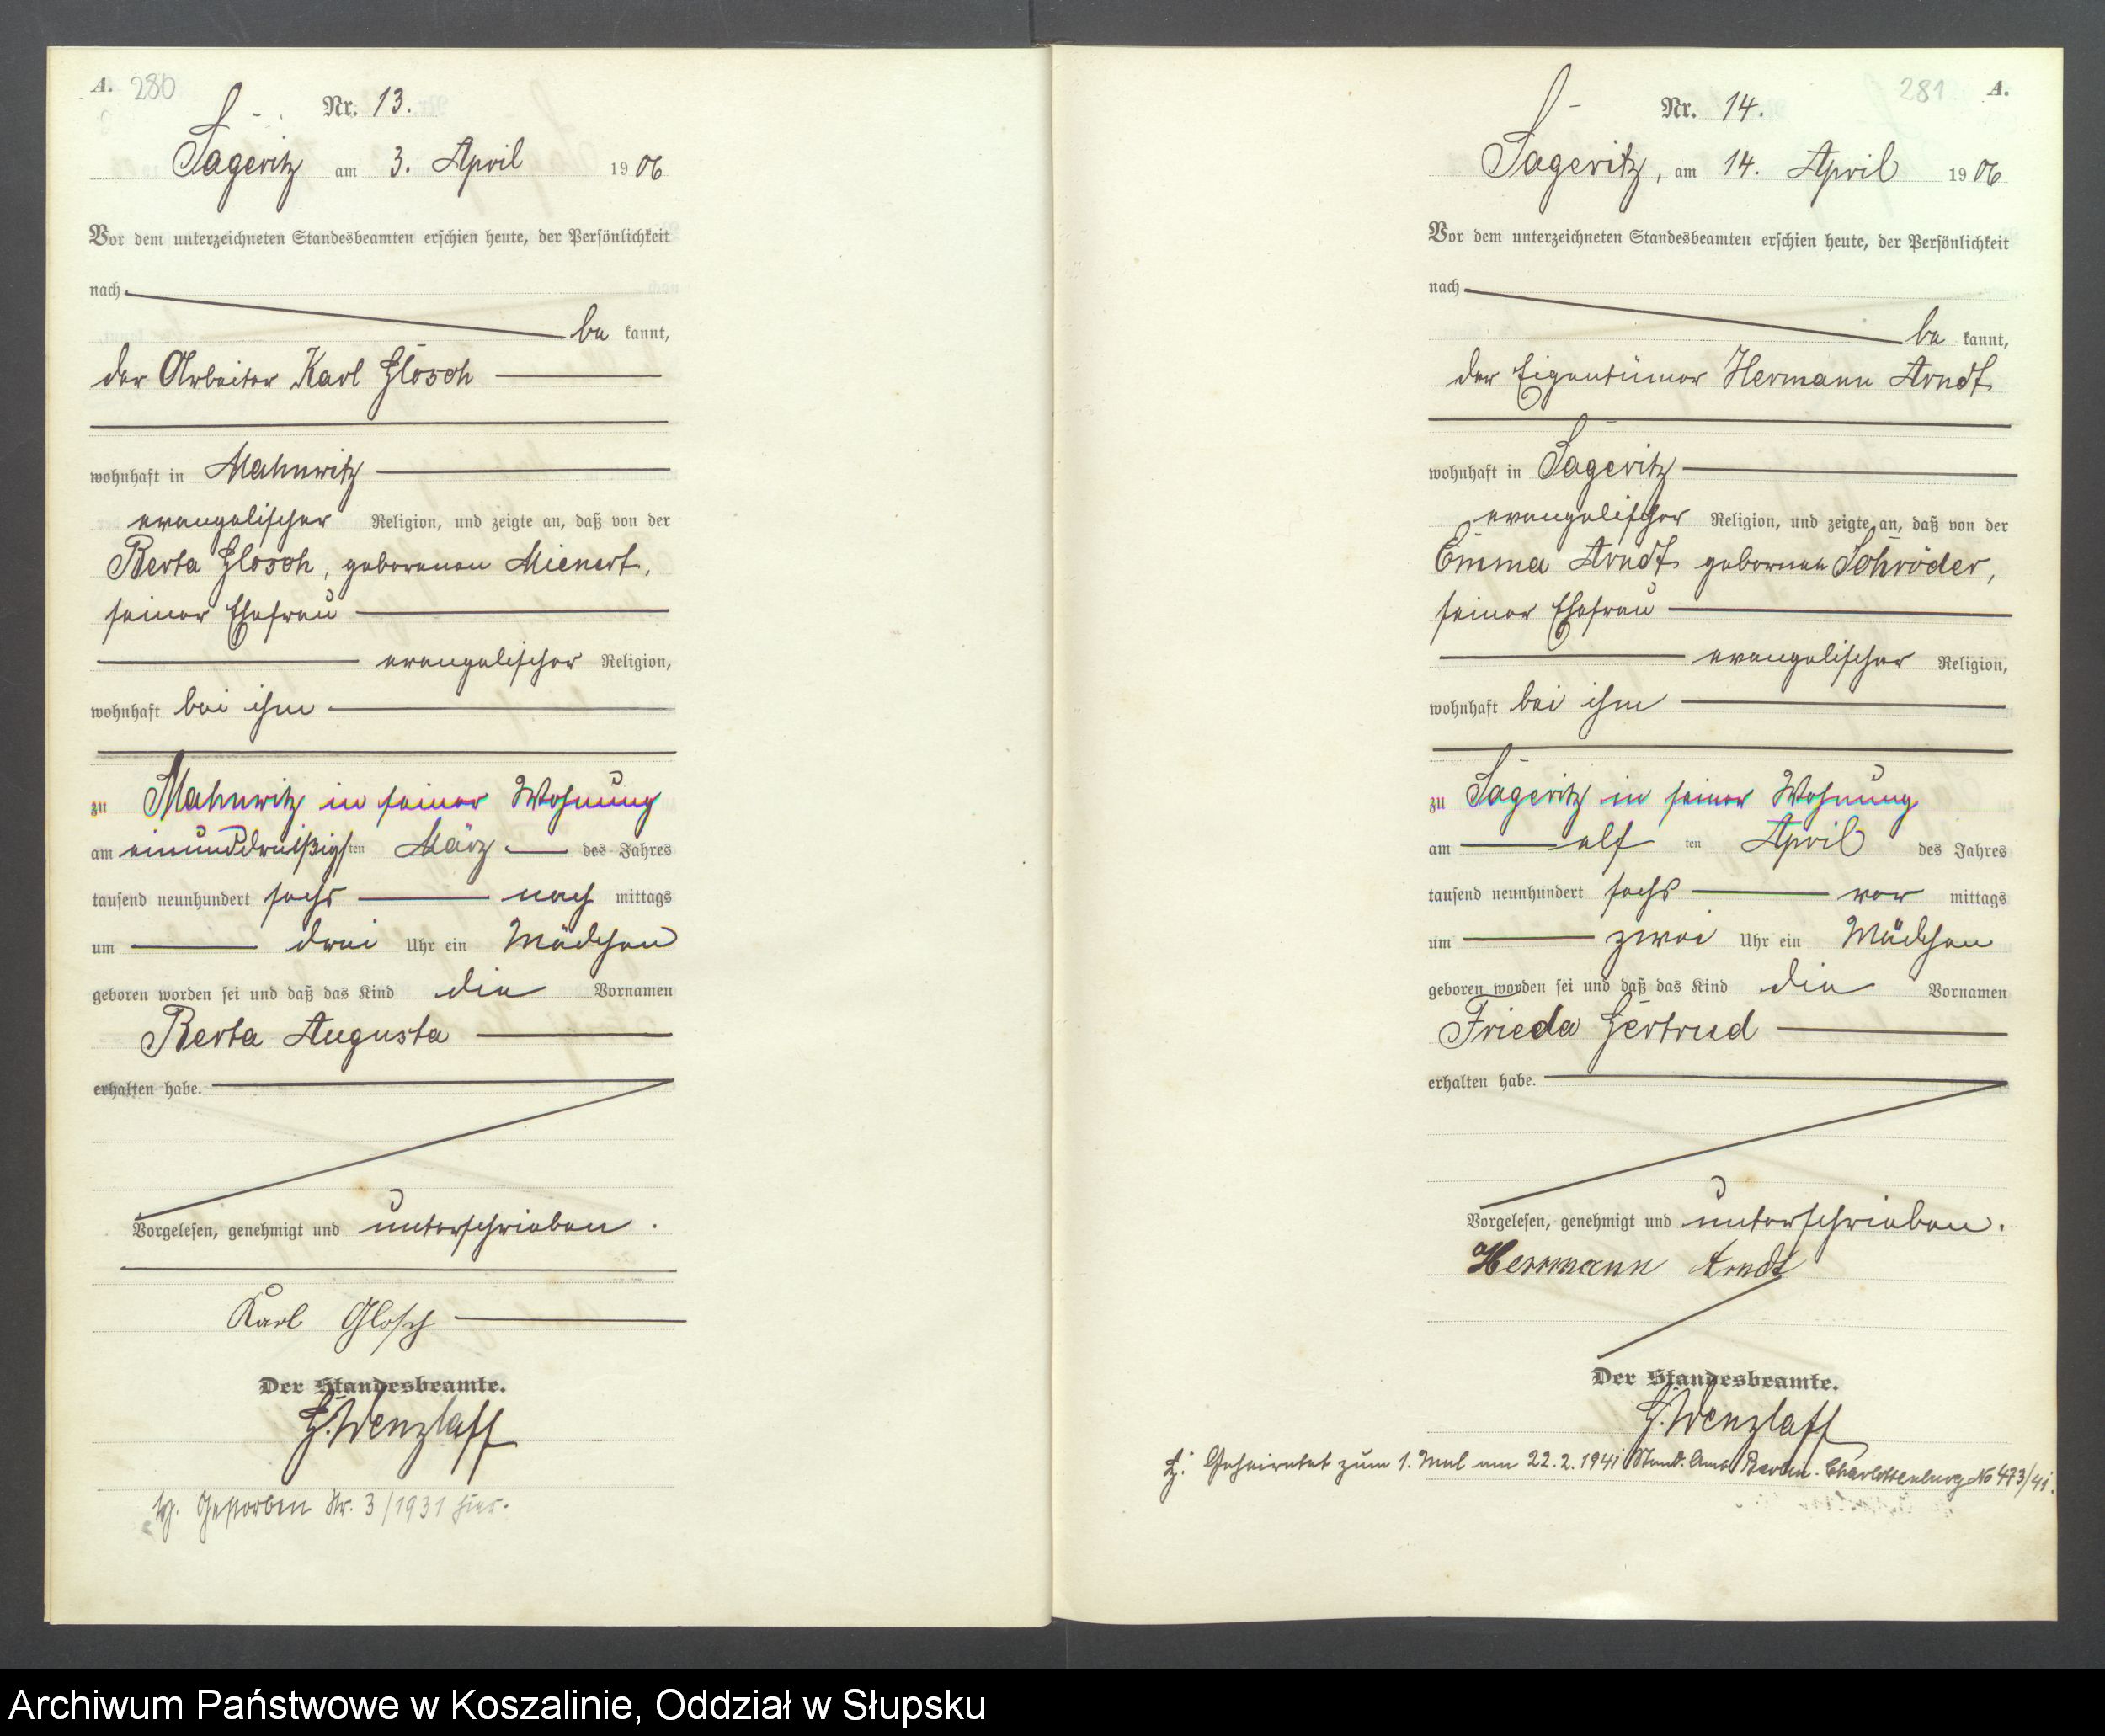 A. 280
Nr. 13.
Sageritz am 3. April 1906
Vor dem unterzeichneten Standesbeamten erschien heute, der Persönlichkeit
nach
be kannt,
der Arbeiter Karl Glosch
wohnhaft in Mahnwitz
evangelischer Religion, und zeigte an, daß von der
Berta Glosch, geborenen Mienert,
seiner Ehefrau
evangelischer Religion,
wohnhaft bei ihm
zu Mahnwitz in seiner Wohnung
am einunddreißigsten März des Jahres
tausend neunhundert sechs nach mittags
um drei Uhr ein Mädchen
geboren worden sei und daß das Kind die Vornamen
Berta Augusta
erhalten habe.
Vorgelesen, genehmigt und unterschrieben.
Karl Glosch
Der Standesbeamte.
G. Wenzlaff
Gestorben Nr. 3/1931 hier.
281 A.
Nr. 14.
Sageritz, am 14. April 1906
Vor dem unterzeichneten Standesbeamten erschien heute, der Persönlichkeit
nach
be kannt,
der Eigentümer Hermann Arndt
wohnhaft in Sageritz
evangelischer Religion, und zeigte an, daß von der
Emma Arndt gebornen Schröder,
seiner Ehefrau
evangelischer Religion,
wohnhaft bei ihm
zu Sageritz in seiner Wohnung
am elf ten April des Jahres
tausend neunhundert sechs vor mittags
um zwei Uhr ein Mädchen
geboren worden sei und daß das Kind die Vornamen
Frieda Gertrud
erhalten habe.
Vorgelesen, genehmigt und unterschrieben.
Hermann Arndt
Der Standesbeamte.
G. Wenzlaff
Geheiratet zum 1. Mal am 22.2.1941 Stand. Amt Berlin-Charlottenburg No 473/41.
Archiwum Państwowe w Koszalinie, Oddział w Słupsku